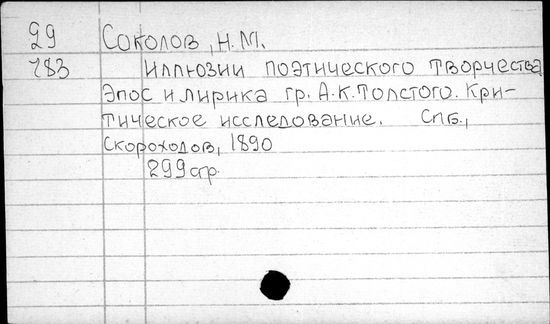 29 Соколов, Н.М.
783 Иллюзии поэтического творчества
Эпос и лирика гр. А.К.Толстого. Кри-
тическое исследование. СПБ.,
Скороходов, 1890
299стр.